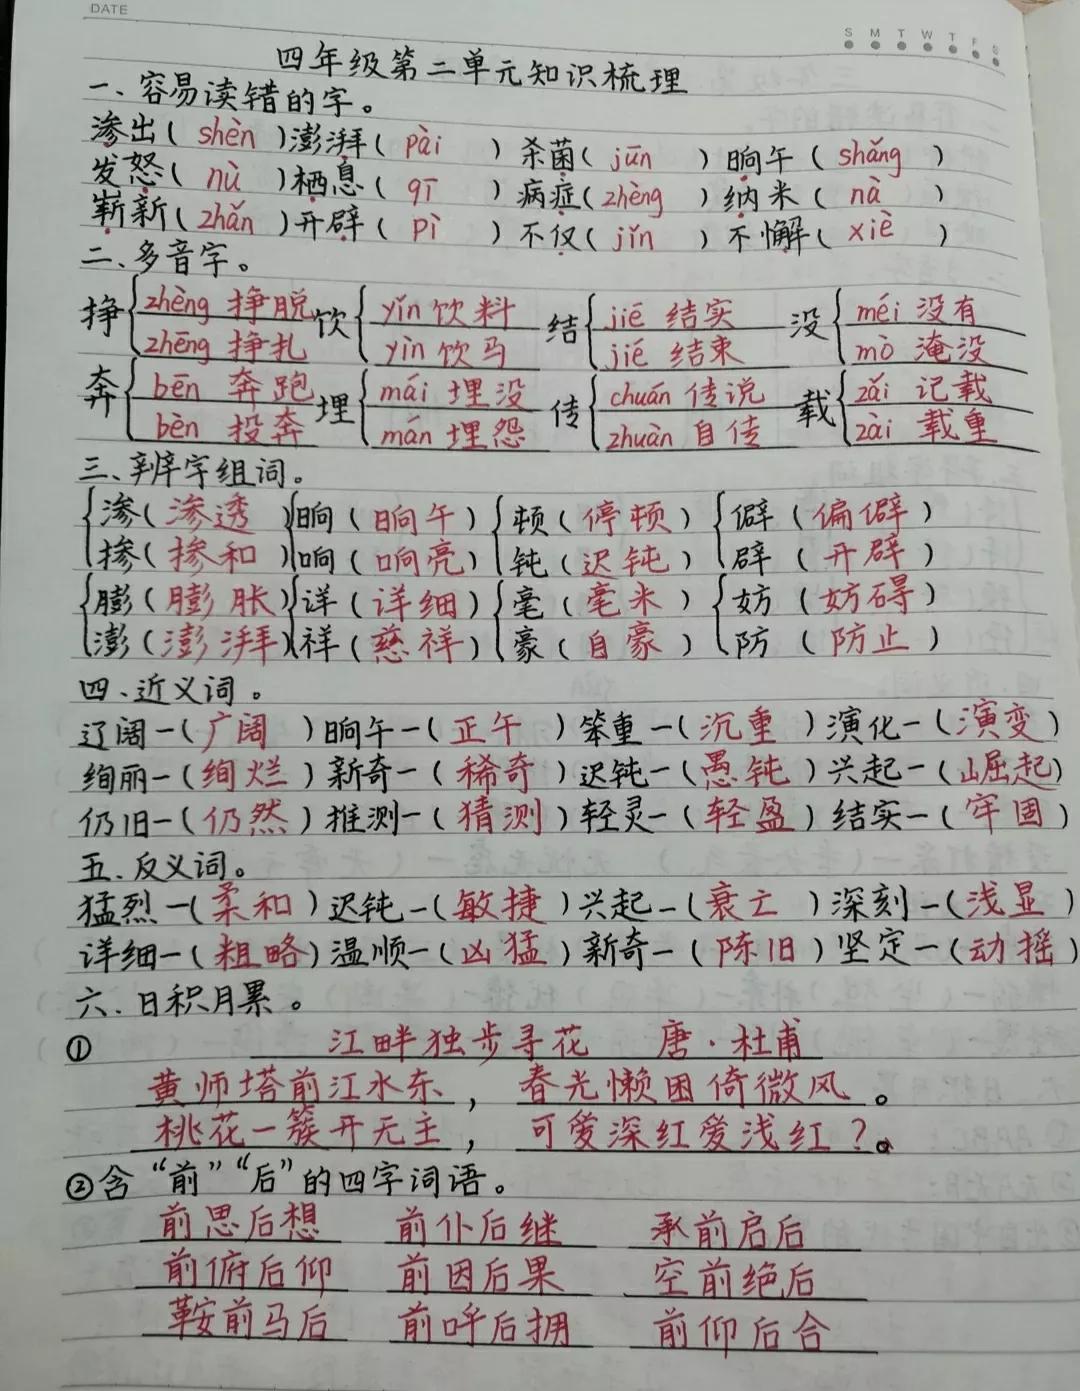 DATE
S M T W T F S
四年级第二单元知识梳理
一、容易读错的字。
渗出(shèn)澎湃(pài)杀菌(jūn)晌午(shǎng)
发怒(nù)栖息(qī)病症(zhèng)纳米(nà)
崭新(zhǎn)开辟(pì)不仅(jǐn)不懈(xiè)
二、多音字。
挣{zhèng 挣脱 饮{yǐn 饮料 结{jiē 结实 没{méi 没有
zhēng 挣扎 yìn 饮马 jié 结束 mò 淹没
奔{bēn 奔跑 埋{mái 埋没 传{chuán 传说 载{zǎi 记载
bèn 投奔 mán 埋怨 zhuàn 自传 zài 载重
三、辨字组词。
渗(渗透) 晌(晌午) 顿(停顿) 僻(偏僻)
掺(掺和) 响(响亮) 钝(迟钝) 辟(开辟)
膨(膨胀) 详(详细) 毫(毫米) 妨(妨碍)
澎(澎湃) 祥(慈祥) 豪(自豪) 防(防止)
四、近义词。
辽阔—(广阔)晌午—(正午)笨重—(沉重)演化—(演变)
绚丽—(绚烂)新奇—(稀奇)迟钝—(愚钝)兴起—(崛起)
仍旧—(仍然)推测—(猜测)轻灵—(轻盈)结实—(牢固)
五、反义词。
猛烈—(柔和)迟钝—(敏捷)兴起—(衰亡)深刻—(浅显)
详细—(粗略)温顺—(凶猛)新奇—(陈旧)坚定—(动摇)
六、日积月累。
① 江畔独步寻花 唐·杜甫
黄师塔前江水东，春光懒困倚微风。
桃花一簇开无主，可爱深红爱浅红?。
②含“前”“后”的四字词语。
前思后想 前仆后继 承前启后
前俯后仰 前因后果 空前绝后
鞍前马后 前呼后拥 前仰后合